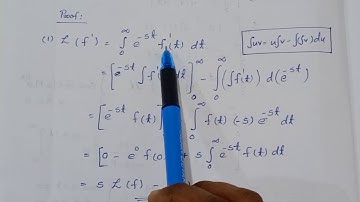 Proof:
(1) L(f') = ∫₀^∞ e^-st f'(t) dt
∫uv = u∫v - ∫(∫v)du
= [e^-st ∫f' dt]₀^∞ - ∫₀^∞ (∫f') d(e^-st)
= [e^-st f(t) ∫ f(t) (-s) e^-st dt
= [0 - e⁰ f(0) + s ∫₀^∞ e^-st f(t) dt
= s L(f) -